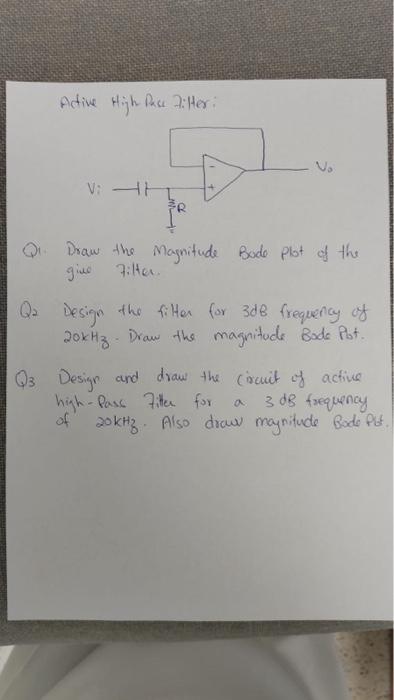 Active High Pass Filter:
Vo
Vi
R
Q1. Draw the Magnitude Bode Plot of the
give Filter.
Q2 Design the filter for 3dB frequency of
20kHz. Draw the magnitude Bode Plot.
Q3 Design and draw the circuit of active
high-Pass Filter for a 3 dB frequency
of 20kHz. Also draw magnitude Bode Plot.